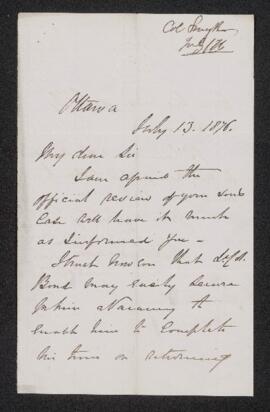 Col Smythe
July /76
Ottawa
July 13. 1876.
My dear Sir
I am afraid the
official review of your son's
case will leave it much
as I informed you –
I trust however that
Bond may easily secure
him a vacancy to
enable him to complete
his time on returning